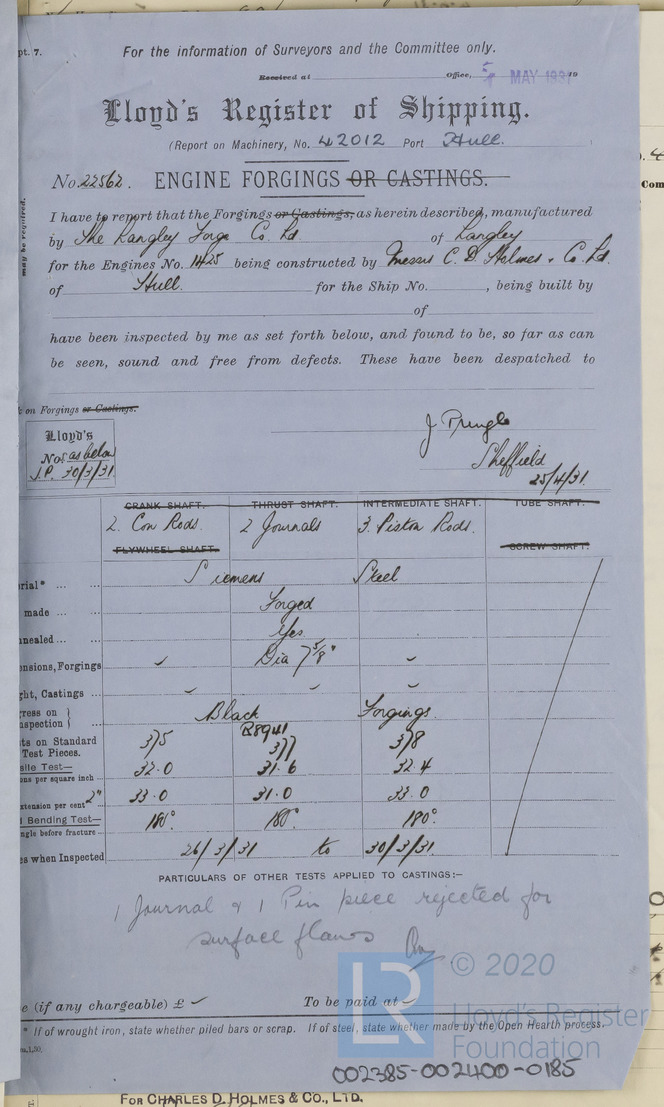 pt. 7.
For the information of Surveyors and the Committee only.
Received at Office, 5 MAY 1931 19
Lloyd's Register of Shipping.
(Report on Machinery, No. 42012 Port Hull.
No. 22562. ENGINE FORGINGS OR CASTINGS.
I have to report that the Forgings or Castings, as herein described, manufactured
by The Langley Forge Co. Ld of Langley
for the Engines No. 1425 being constructed by Messrs C. D. Holmes & Co. Ld.
of Hull. for the Ship No. , being built by
of
have been inspected by me as set forth below, and found to be, so far as can
be seen, sound and free from defects. These have been despatched to
may be required.
on Forgings or Castings.
Lloyd's
Nos as below
J.P. 30/3/31
J Pringle
Sheffield
25/4/31.
CRANK SHAFT. THRUST SHAFT. INTERMEDIATE SHAFT. TUBE SHAFT.
2. Con Rods. 2 Journals 3. Piston Rods.
FLYWHEEL SHAFT. SCREW SHAFT.
rial* ... ... Siemens Steel
made ... Forged
nnealed ... ... Yes.
nsions, Forgings ✓ Dia 7 5/8" ✓
ght, Castings ... ✓ ✓ ✓
ress on } Black Forgings.
spection } B8941
ts on Standard 375 377 378
Test Pieces.
sile Test— 32.0 31.6 32.4
ons per square inch ...
xtension per cent 2" ... 33.0 31.0 33.0
l Bending Test— 180° 180° 180°
ngle before fracture ...
es when Inspected 26/3/31 to 30/3/31.
PARTICULARS OF OTHER TESTS APPLIED TO CASTINGS:—
1 Journal & 1 Pin piece rejected for
surface flaws
© 2020
e (if any chargeable) £ ✓ To be paid at ✓
LR
Lloyd's Register
Foundation
* If of wrought iron, state whether piled bars or scrap. If of steel, state whether made by the Open Hearth process.
002385-002400-0185
FOR CHARLES D. HOLMES & CO., LTD.
Com